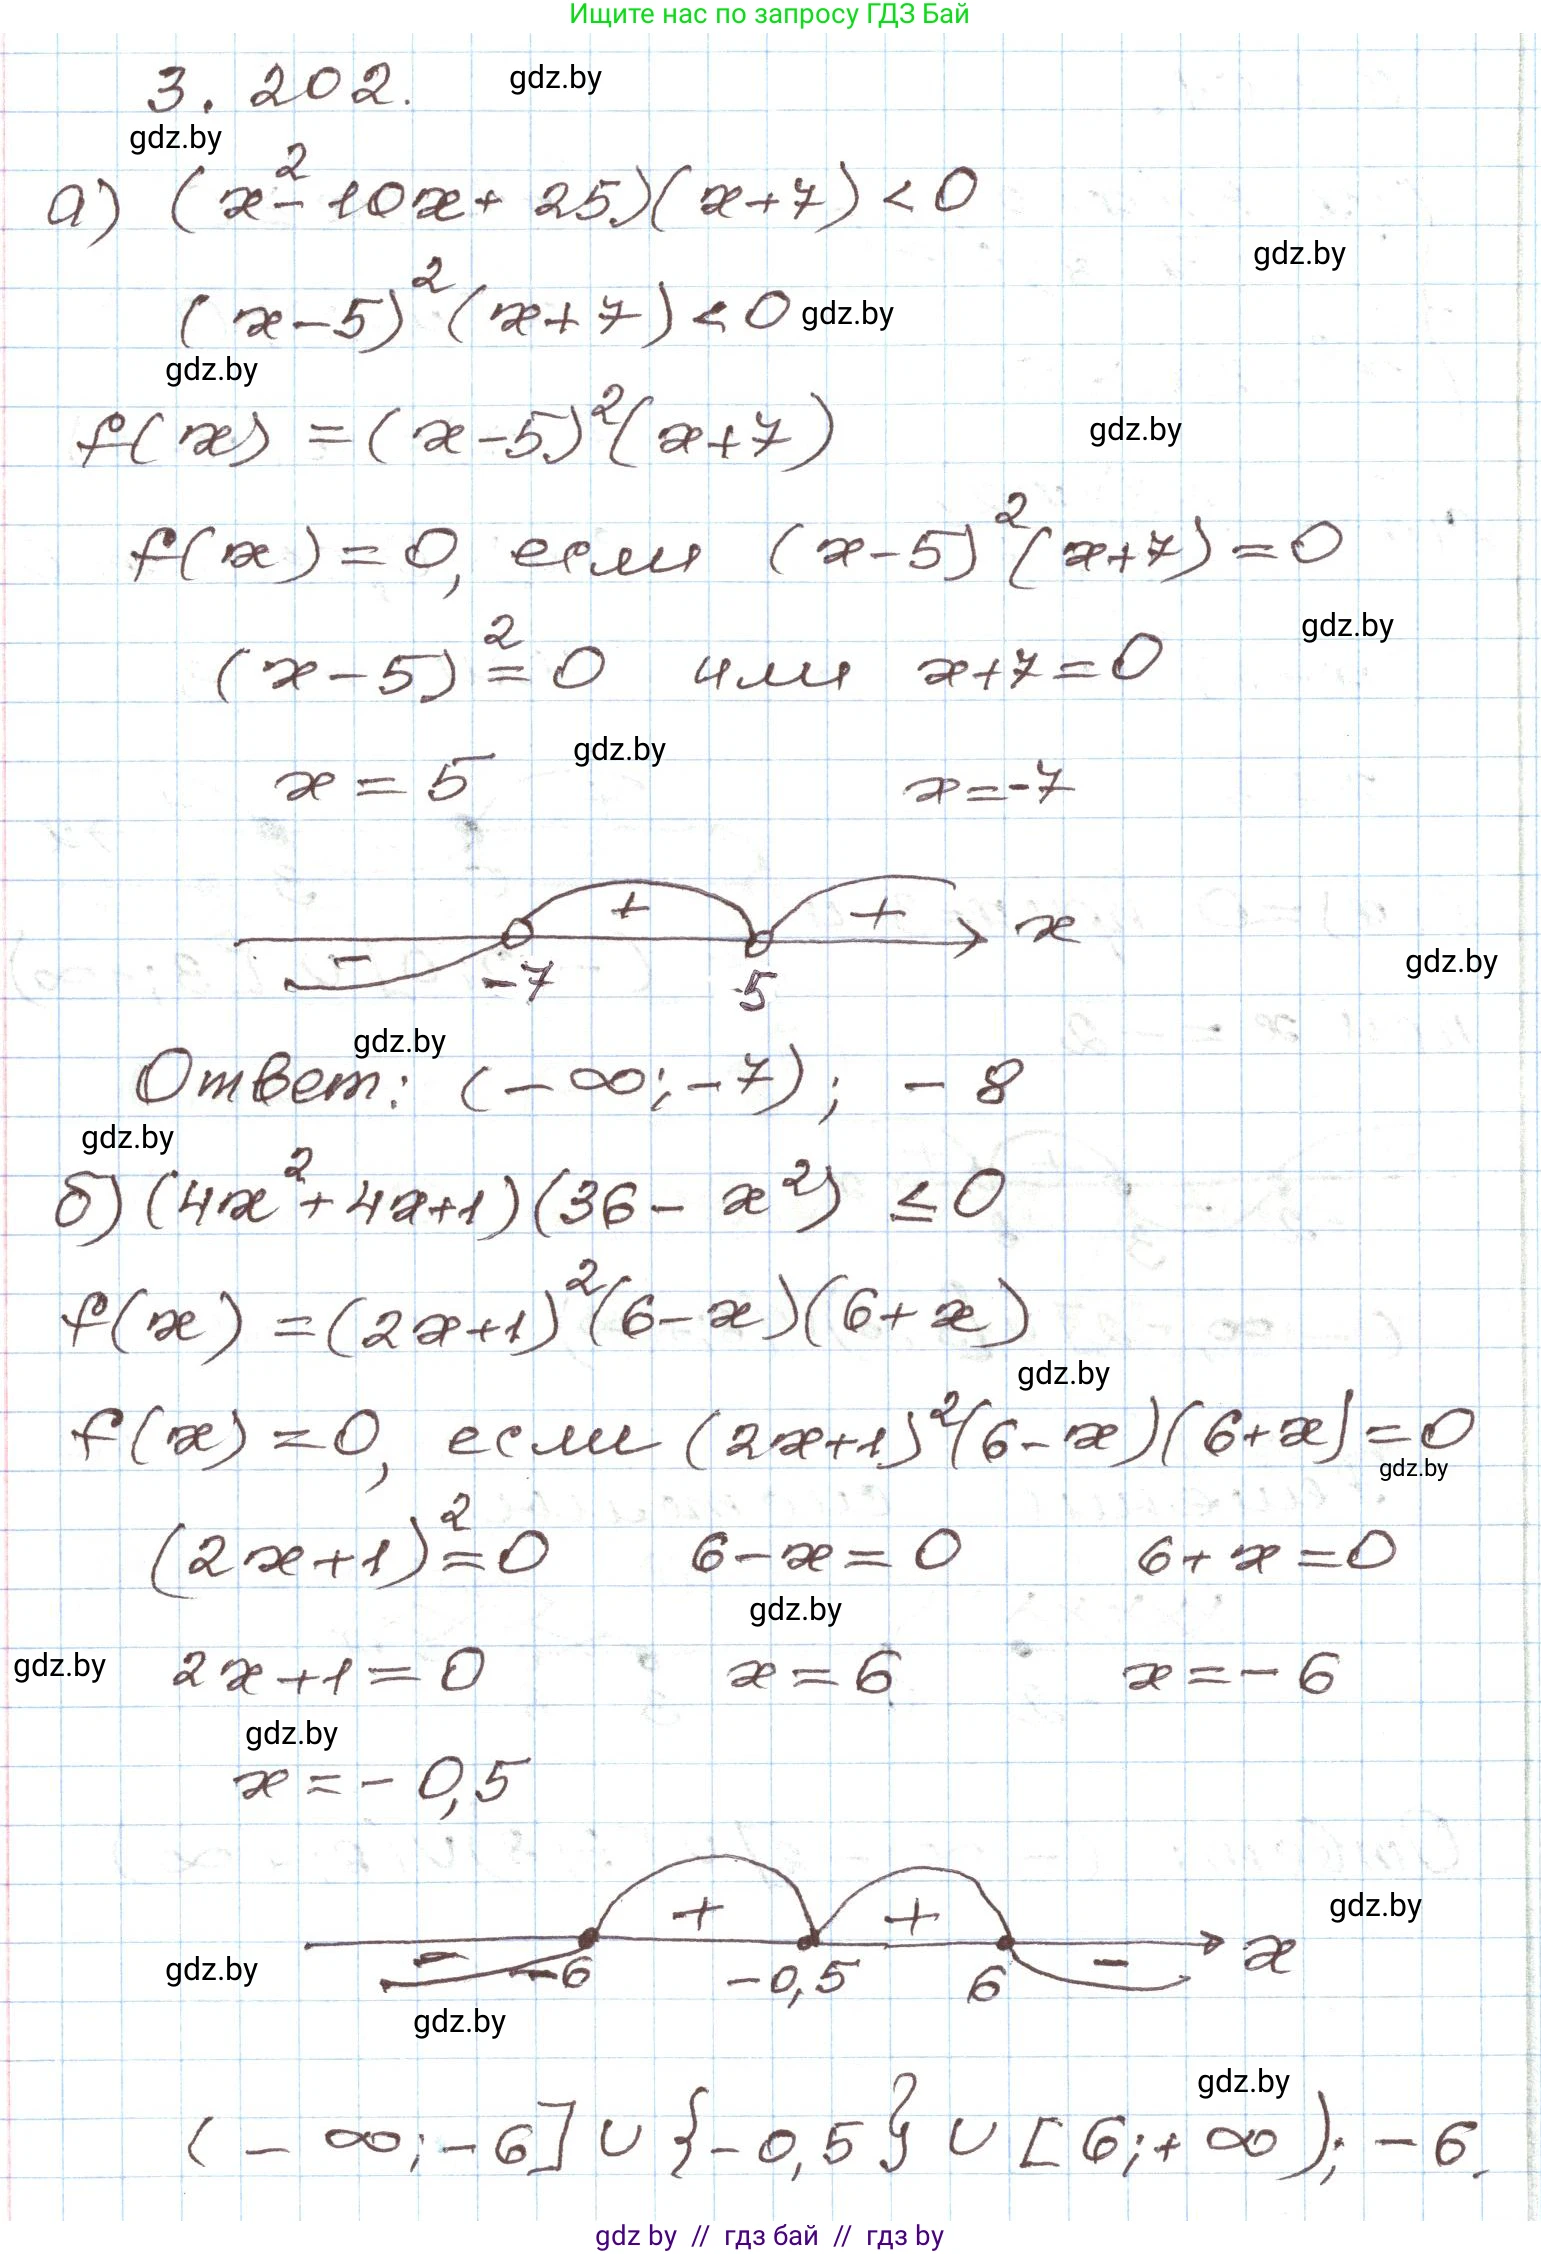 Ищите нас по запросу ГДЗ Бай
3.202.
gdz.by
gdz.by
а) (x²-10x+25)(x+7)<0
gdz.by
(x-5)²(x+7)<0
gdz.by
gdz.by
f(x)=(x-5)²(x+7)
gdz.by
f(x)=0, если (x-5)²(x+7)=0
gdz.by
(x-5)²=0 или x+7=0
gdz.by
x=5 x=-7
- + + x
gdz.by
-7 5
gdz.by
Ответ: (-∞;-7); -8
gdz.by
б) (4x²+4x+1)(36-x²)≤0
f(x)=(2x+1)²(6-x)(6+x)
gdz.by
f(x)=0, если (2x+1)²(6-x)(6+x)=0
gdz.by
(2x+1)²=0 6-x=0 6+x=0
gdz.by
gdz.by
2x+1=0 x=6 x=-6
gdz.by
x=-0,5
gdz.by
- + + - x
gdz.by
-6 -0,5 6
gdz.by
gdz.by
(-∞;-6]∪{-0,5}∪[6;+∞); -6.
gdz by // гдз бай // гдз by